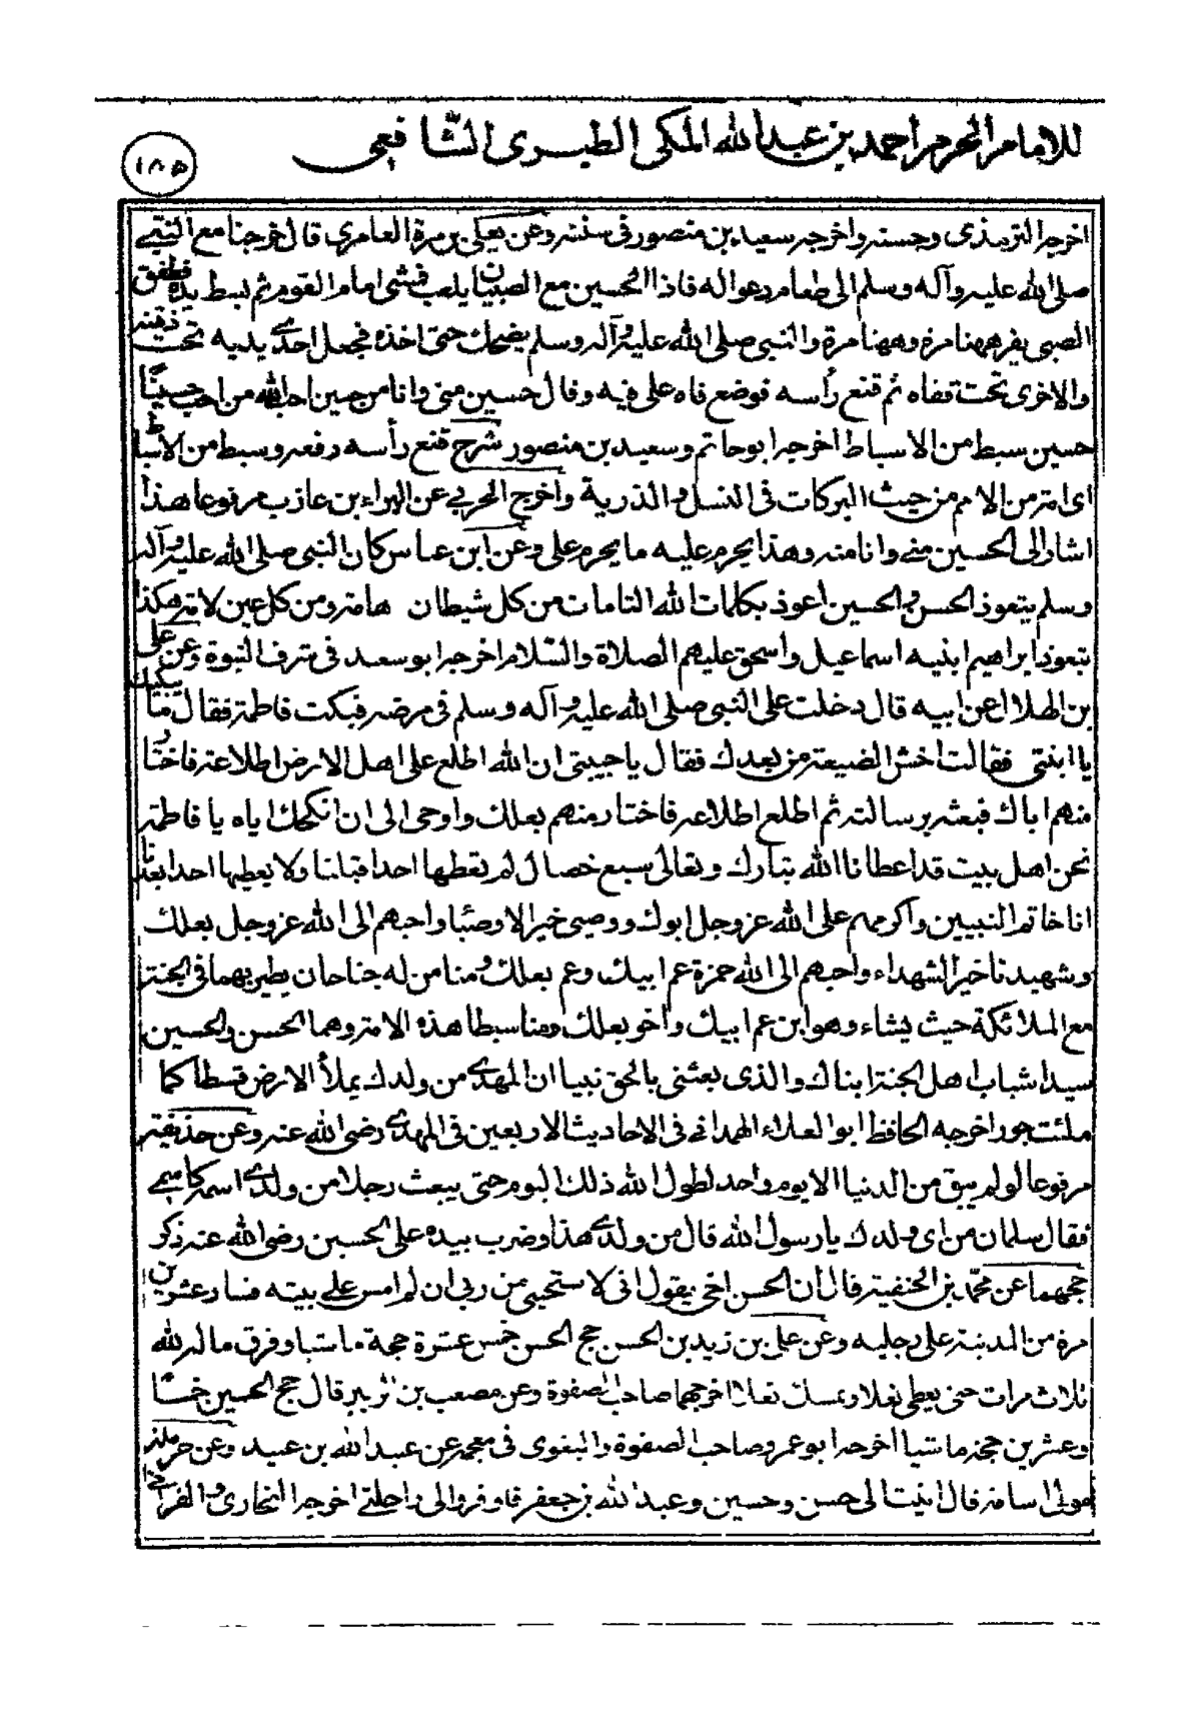 للامام المحرم احمد بن عبد الله المكى الطبرى الشافعى
١٨٥
اخرجه الترمذى وحسنه واخرجه سعيد بن منصور فى سننه وعن يعلى بن مرة العامرى قال خرجنا مع النبى
صلى الله عليه وآله وسلم الى طعام دعوا له فاذا الحسين مع الصبيان يلعب فمشى امام القوم ثم بسط يده فطفق
الصبى يفر ههنا مرة وههنا مرة والنبى صلى الله عليه وآله وسلم يضحك حتى اخذه فجعل احدى يديه تحت ذقنه
والاخرى تحت قفاه ثم قنع رأسه فوضع فاه على فيه وقال حسين منى وانا من حسين احب الله من احب حسينا
حسين سبط من الاسباط اخرجه ابو حاتم وسعيد بن منصور شرح قنع رأسه رفعه وسبط من الاسباط
اى امة من الامم من حيث البركات فى النسل والذرية واخرج الحربى عن البراء بن عازب مرفوعا هذا
اشار الى الحسين منى وانا منه وهذا يحرم عليه ما يحرم على وعن ابن عباس كان النبى صلى الله عليه وآله
وسلم يتعوذ الحسن والحسين اعوذ بكلمات الله التامات من كل شيطان هامة ومن كل عين لامة هكذا
يتعوذ ابراهيم ابنيه اسماعيل واسحق عليهم الصلاة والسلام اخرجه ابو سعد فى شرف النبوة وعن على
بن الهلال عن ابيه قال دخلت على النبى صلى الله عليه وآله وسلم فى مرضه فبكت فاطمة فقال ما يبكيك
يا ابنتى فقالت اخشى الضيعة من بعدك فقال يا حبيبتى ان الله اطلع على اهل الارض اطلاعة فاختار
منهم اباك فبعثه برسالته ثم اطلع اطلاعة فاختار منهم بعلك واوحى الى ان انكحك اياه يا فاطمة
نحن اهل بيت قد اعطانا الله تبارك وتعالى سبع خصال لم يعطها احدا قبلنا ولا يعطيها احدا بعدنا
انا خاتم النبيين واكرمهم على الله عز وجل ابوك ووصيى خير الاوصيا واحبهم الى الله عز وجل بعلك
وشهيدنا خير الشهداء واحبهم الى الله حمزة عم ابيك وعم بعلك ومنا من له جناحان يطير بهما فى الجنة
مع الملائكة حيث يشاء وهو ابن عم ابيك واخو بعلك ومنا سبطا هذه الامة وهما الحسن والحسين
سيدا شباب اهل الجنة ابناك والذى بعثنى بالحق نبيا ان المهدى من ولدك يملأ الارض قسطا كما
ملئت جورا اخرجه الحافظ ابو العلاء الهمدانى فى الاحاديث الاربعين فى المهدى رضى الله عنه وعن حذيفة
مرفوعا لو لم يبق من الدنيا الا يوم واحد لطول الله ذلك اليوم حتى يبعث رجلا من ولدى اسمه كاسمى
فقال سلمان من اى ولدك يا رسول الله قال من ولدى هذا وضرب بيده على الحسين رضى الله عنه ذكر
حجهما عن محمد بن الحنفية قال ان الحسن اخى يقول انى لاستحيى من ربى ان لم امس على بيته فسار عشرين
مرة من المدينة على رجليه وعن على بن زيد بن الحسن حج الحسن خمس عشرة حجة ماشيا وفرق ماله لله
ثلاث مرات حتى يعطى نعلا ويمسك نعلا اخرجهما صاحب الصفوة وعن مصعب بن الزبير قال حج الحسين خمسا
وعشرين حجة ماشيا اخرجه ابو عمر وصاحب الصفوة والبغوى فى معجمه عن عبد الله بن عبيد وعن حرملة
مولى اسامة قال اتيت الى حسن وحسين وعبد الله بن جعفر فاوقروا لى راحلتى اخرجه البخارى